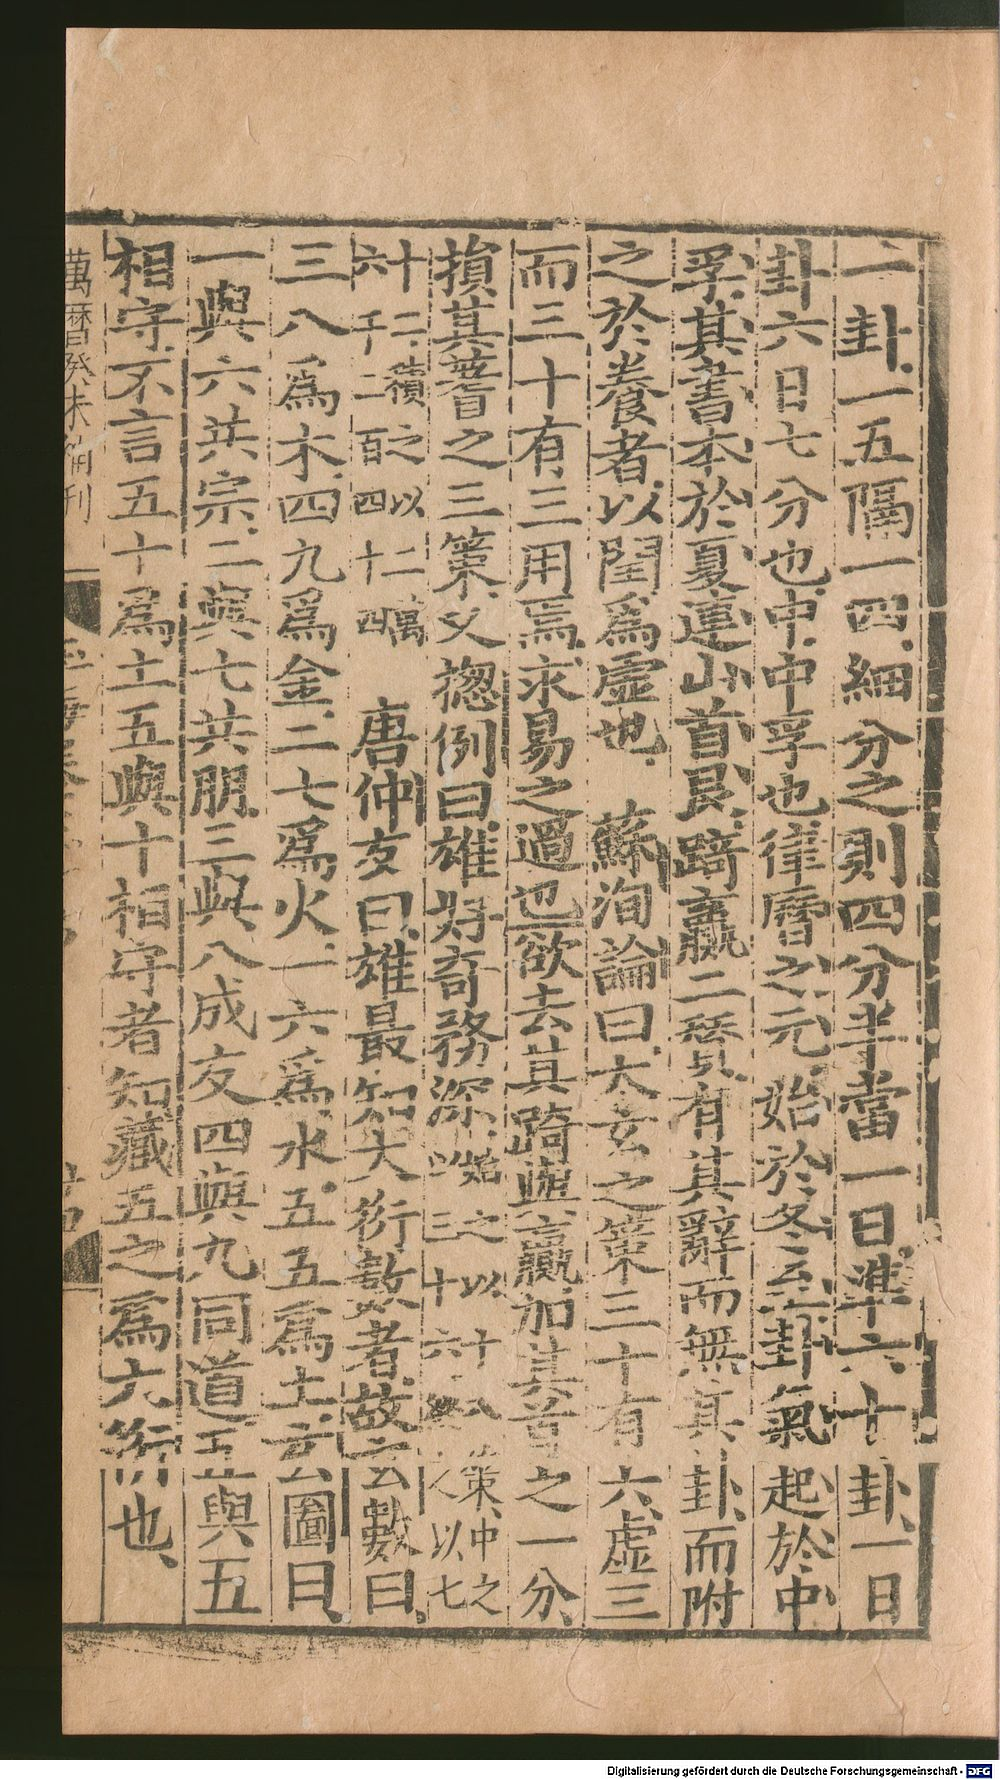 一卦一五隔一四細分之則四分半當一日準六十卦一日
卦六日七分也中中孚也律曆之元始於冬至卦氣起於中
孚其書本於夏連山首艮踦贏二贊有其辭而無其卦而附
之於養者以閏爲虛也 蘇洵論曰太玄之策三十有六虛三
而三十有三用焉求易之過也欲去其踦與贏加其首之一分
損其蓍之三策又揔例曰雄好奇務深始之以十八策中之
以三十六之以七
十二積之以二萬
六千二百四十四 唐仲友曰雄最知大衍數者故玄數曰
三八爲木四九爲金二七爲火一六爲水五五爲土玄圖曰
一與六共宗二與七共朋三與八成友四與九同道五與五
相守不言五十爲土五與十相守者知藏五之爲大衍也
萬曆癸未刊
Digitalisierung gefördert durch die Deutsche Forschungsgemeinschaft - DFG